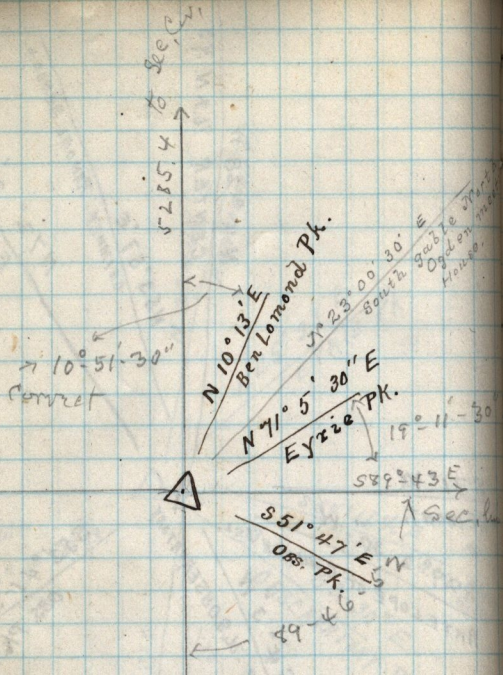 5285.4 to Sec. Cr.
N 10° 13' E
Ben Lomond Pk.
N 23° 00' 30" E
South gable North
Ogden
House.
10°-51'-30"
Correct
N 71° 5' 30" E
Eyrie Pk.
19°-11'-30
S89°-43 E
Sec.
S 51° 47' E
Obs. Pk.
89-46-5